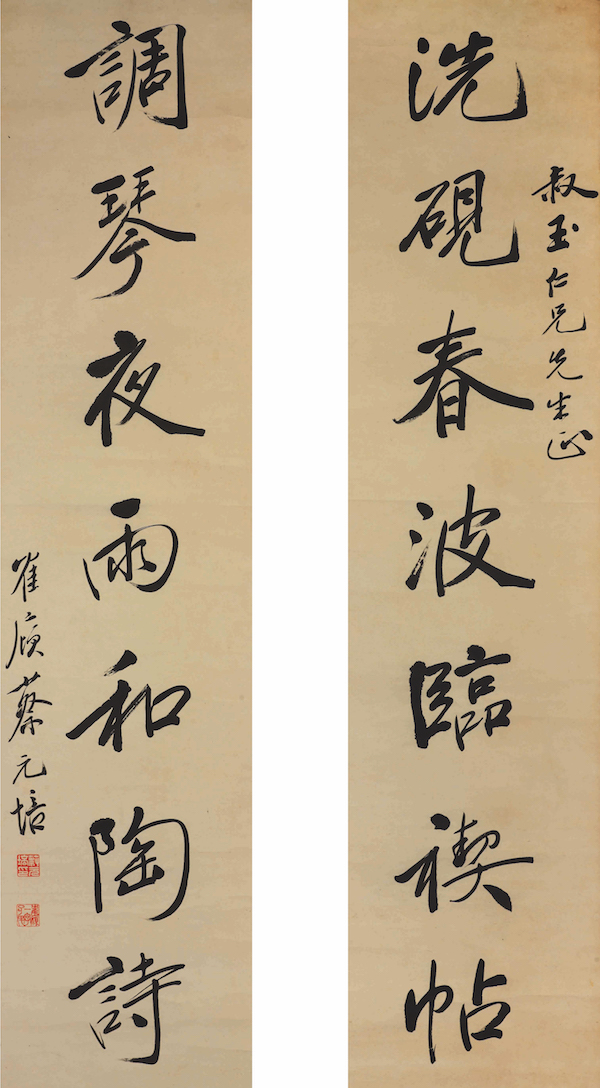 叔玉仁兄先生正
洗硯春波臨禊帖
調琴夜雨和陶詩
崔廎蔡元培